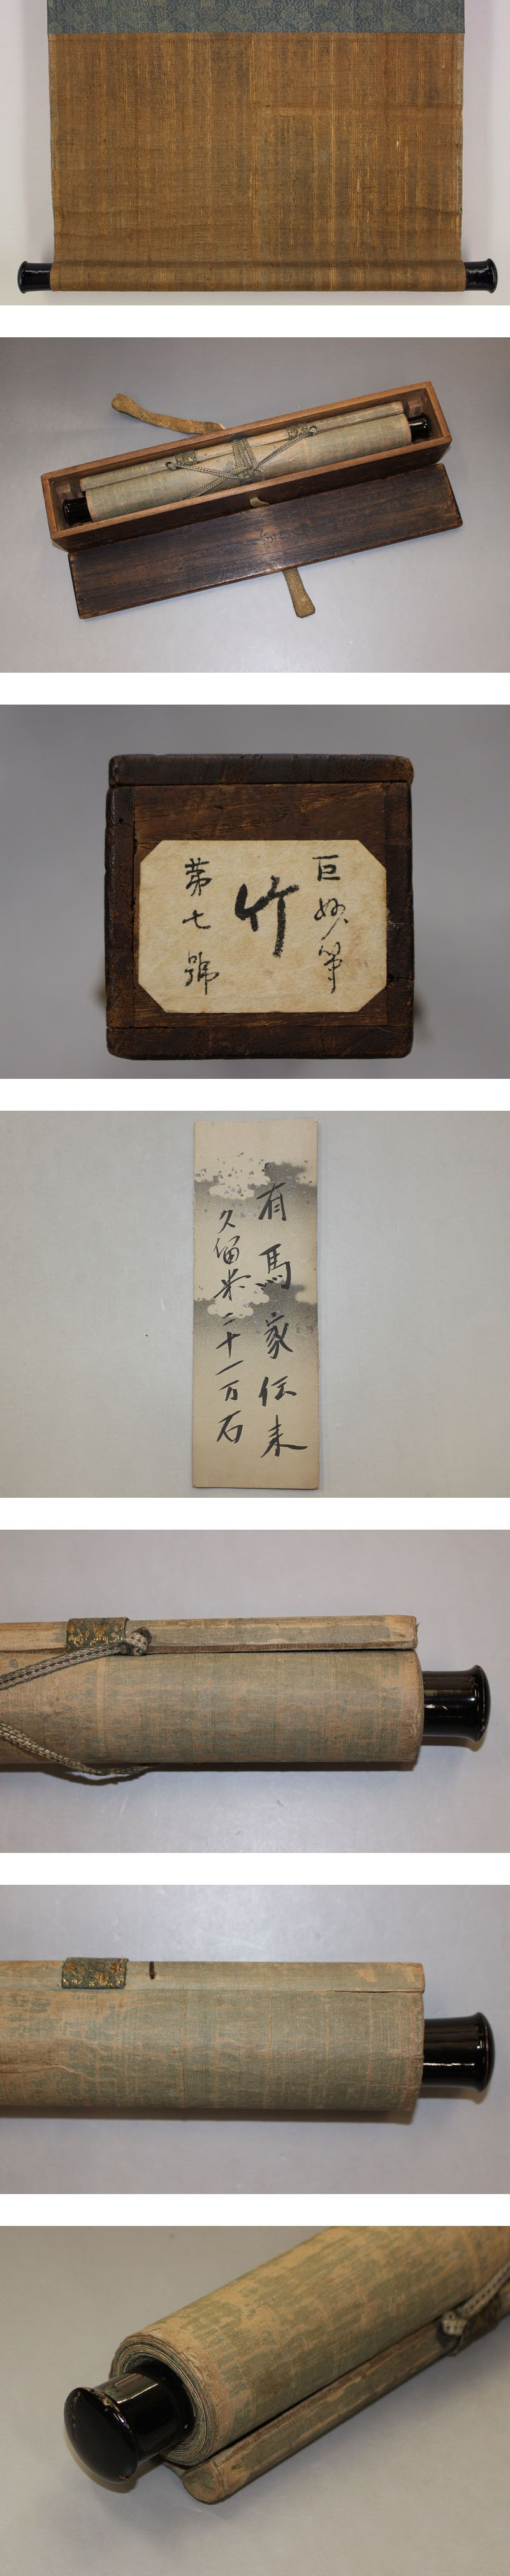 巨妙筆
竹
第七號
有馬家伝来
久留米二十一万石